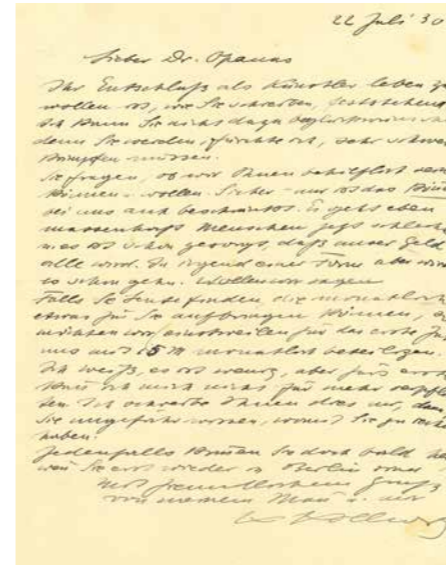 22 Juli 30
Lieber Dr. Opanas
Ihr Entschluß als Künstler leben zu
wollen ist, wie Sie schreiben, feststehend
Ich kann Sie nicht dazu beglückwünschen
denn Sie werden, fürchte ich, sehr schwer
kämpfen müssen.
Sie fragen, ob wir Ihnen behilflich sein
können u. wollen. Sicher – nur ist das Können
bei uns auch beschränkt. Es geht eben
massenhaft Menschen jetzt schlecht
es ist schon gesorgt, daß unser Geld
alle wird. In irgend einer Form aber wird
es schon gehn. Wollen wir sagen
Falls Sie Leute finden die monatlich
etwas für Sie aufbringen können, so
möchten wir einstweilen für das erste Jahr
uns mit 15 M monatlich beteiligen.
Ich weiß, es ist wenig, aber fürs erste
kann ich mich nicht für mehr verpflich
ten Ich schreibe Ihnen dies nur, damit
Sie ungefähr wissen, womit Sie zu rechnen
haben.
Jedenfalls kommen Sie doch bald
wenn Sie erst wieder in Berlin sind
Mit freundlichem Gruß
von meinem Mann u. mir
Kollwitz